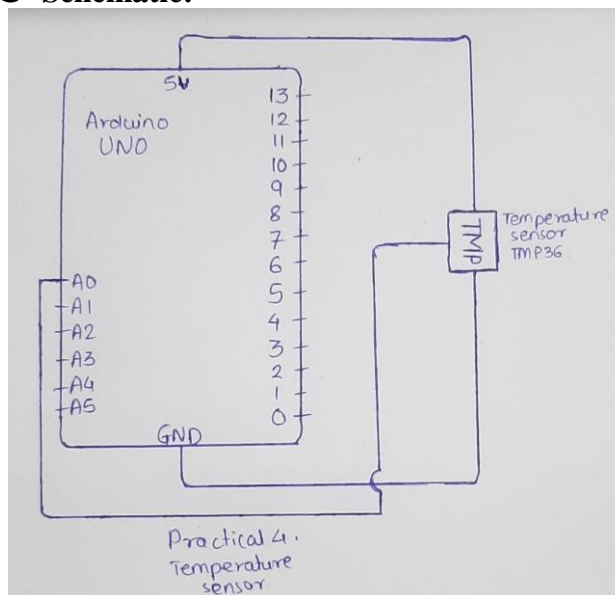 Schematic:
5V
Arduino
UNO
13
12
11
10
9
8
7
6
5
4
3
2
1
0
A0
A1
A2
A3
A4
A5
GND
TMP
Temperature
sensor
TMP36.
Practical 4.
Temperature
sensor